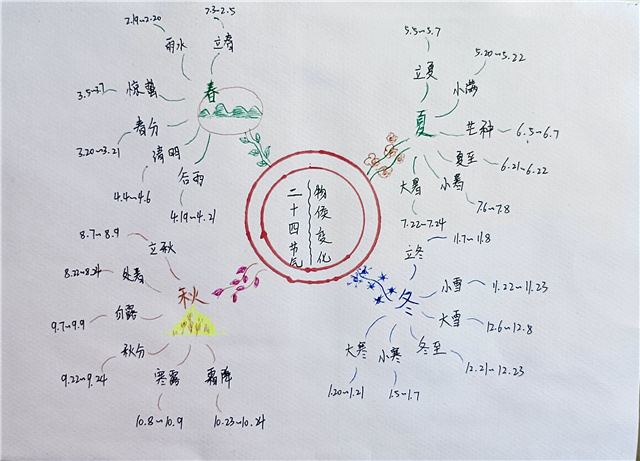 物候变化
二十四节气
春
立春
2.3~2.5
雨水
2.19~2.20
惊蛰
3.5~3.7
春分
3.20~3.21
清明
4.4~4.6
谷雨
4.19~4.21
夏
立夏
5.5~5.7
小满
5.20~5.22
芒种
6.5~6.7
夏至
6.21~6.22
小暑
7.6~7.8
大暑
7.22~7.24
秋
立秋
8.7~8.9
处暑
8.22~8.24
白露
9.7~9.9
秋分
9.22~9.24
寒露
10.8~10.9
霜降
10.23~10.24
冬
立冬
11.7~11.8
小雪
11.22~11.23
大雪
12.6~12.8
冬至
12.21~12.23
小寒
1.5~1.7
大寒
1.20~1.21